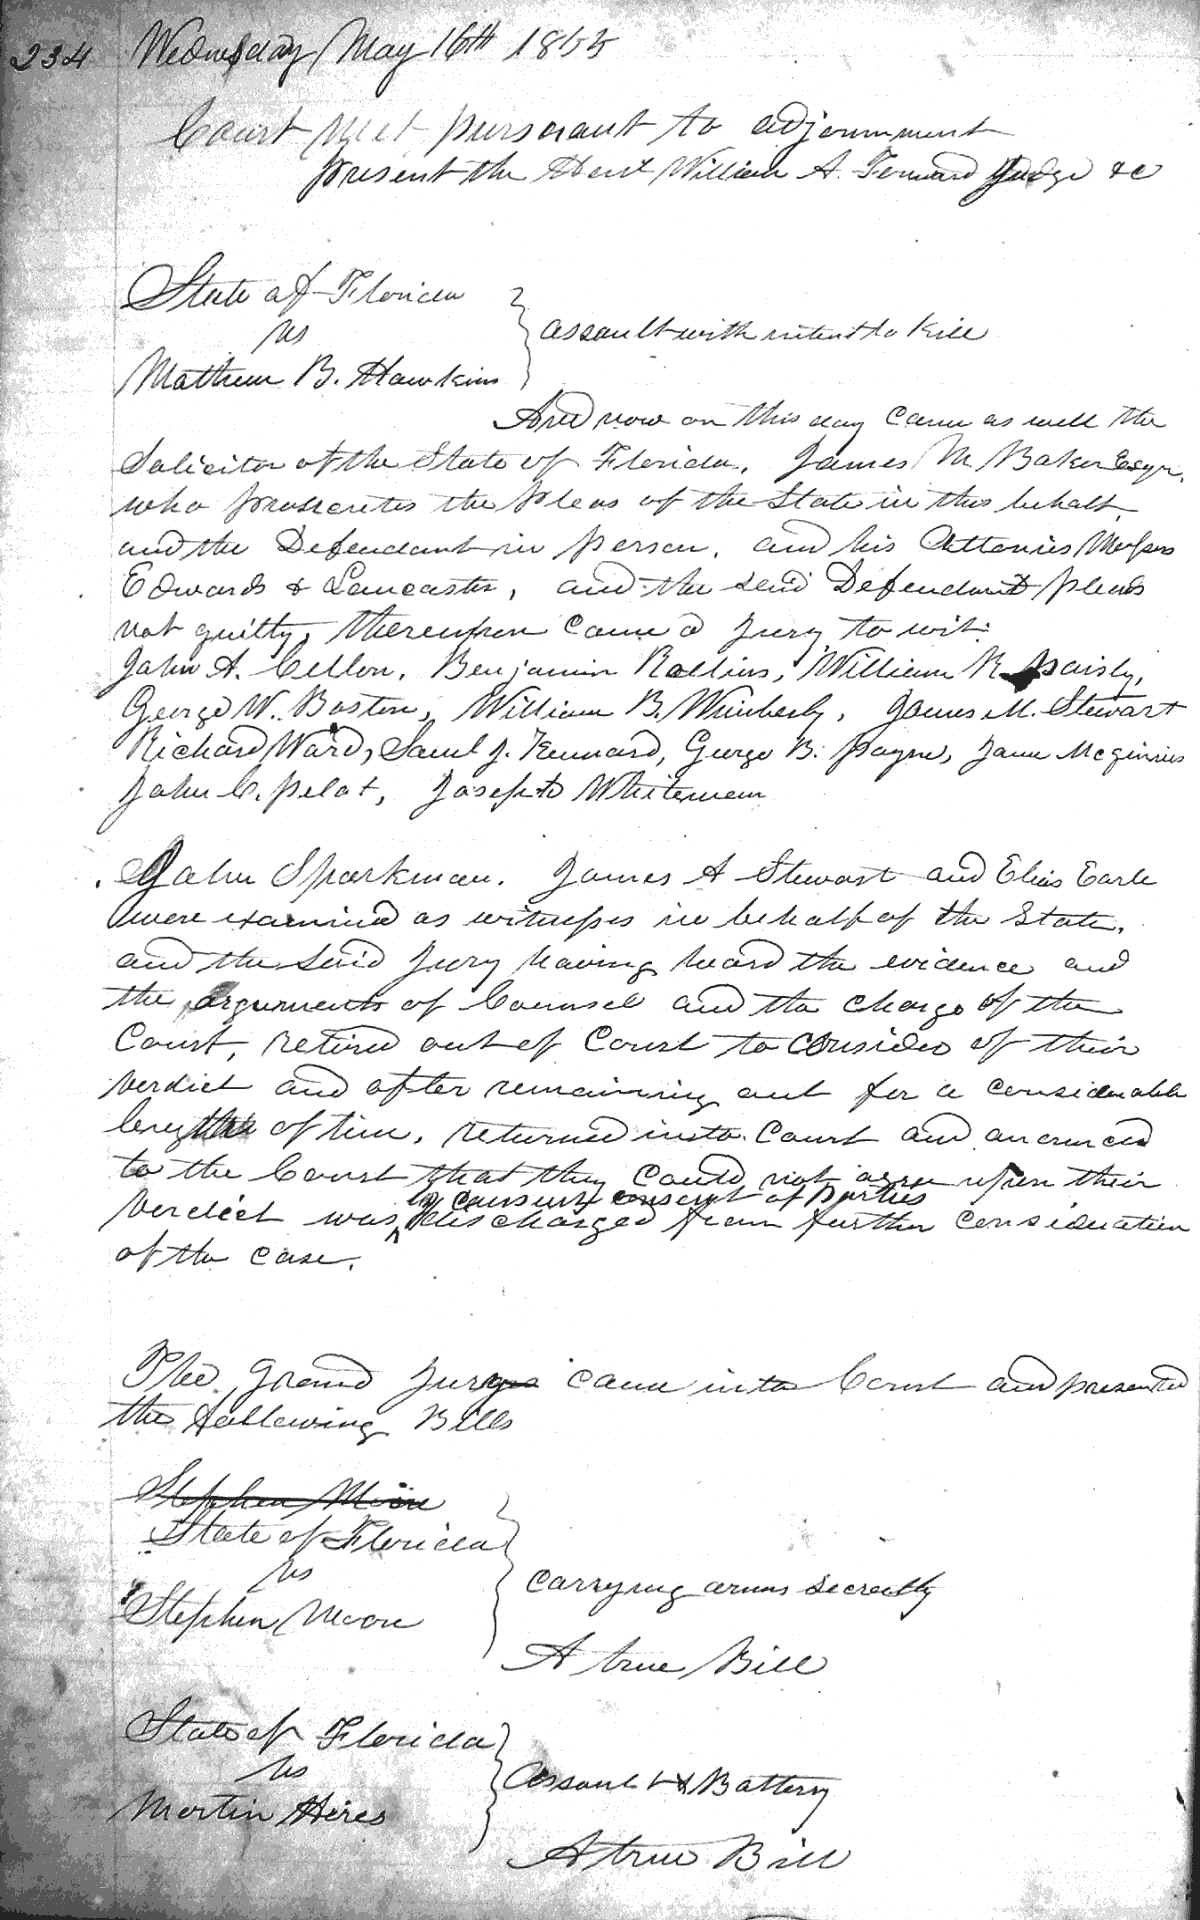 234 Wednesday May 16th 1855
Court met pursuant to adjournment
present the Honl William A. Forward Judge &c
State of Florida
vs
Mathew B. Hawkins
assault with intent to kill
And now on this day came as well the
Solicitor of the State of Florida, James M Baker Esqr.
who prosecutes the Pleas of the State in this behalf
and the Defendant in person, and his Attonies Messrs
Edwards & Lancaster, and the said Defendant pleads
not guilty, thereupon came a Jury to wit:
John A. Cellon, Benjamin Rollins, William R Paisly,
George W. Boston, William B. Wimberly, James M. Stewart
Richard Ward, Saml J. Kennard, George B. Payne, Jame Mcginnis
John C. Pelot, Joseph Whiteman
John Sparkman, James A Stewart and Elias Earle
were examined as witnesses in behalf of the State,
and the said Jury having heard the evidence and
the arguments of Counsel and the charge of the
Court, retired out of Court to consider of their
verdict and after remaining out for a considerable
length of time, returned into Court and anounced
to the Court that they could not agree upon their
by consent of Parties
verdict was discharged from further consideration
of the case.
The Grand Jury came into Court and presented
the following Bills
Stephen Moore
State of Florida
vs
Stephen Moore
carrying arms secreatly
A true Bill
State of Florida
vs
Martin Hires
Assault & Battery
A true Bill